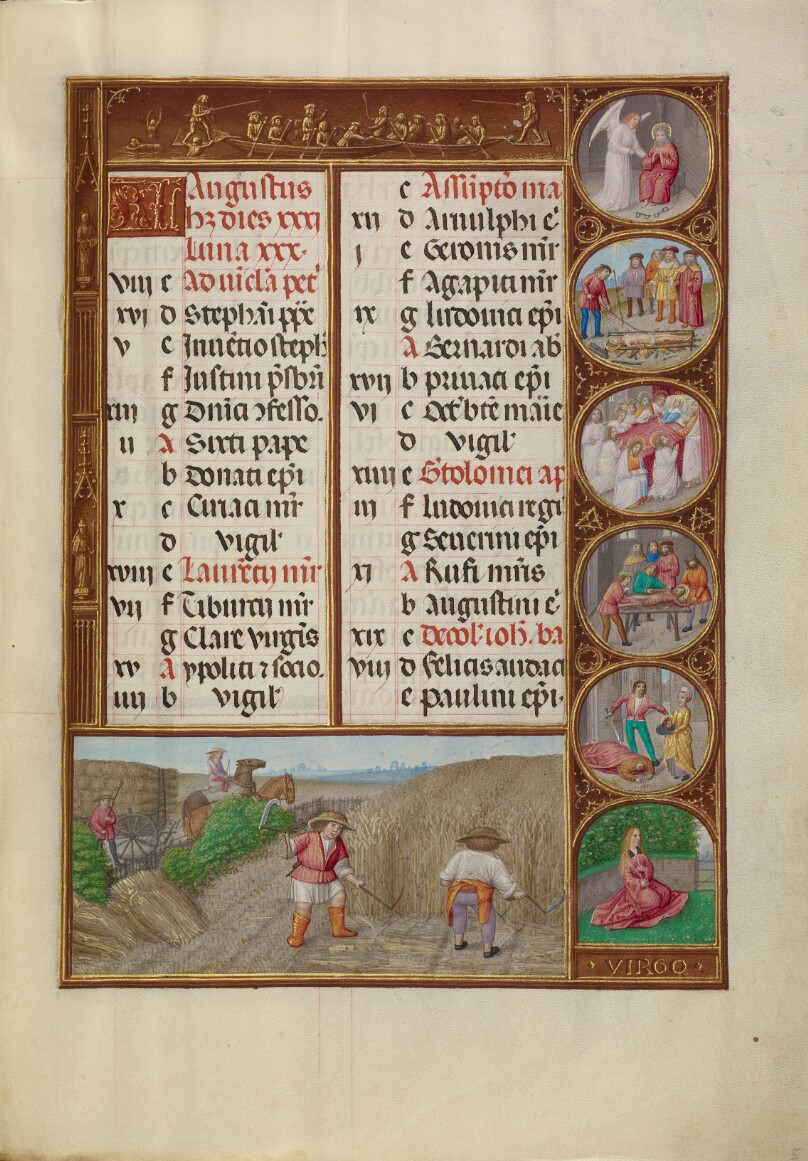 KL Augustus
hz dies xxxj
Luna xxx.
viij c Ad vīcla pet'
xvj d Stephāi ppe
v e Inuētio steph
f Justini p̄sbri
xiij g Dnīci ɔfesso.
ij A Sixti pape
b Donati epi
x c Ciriaci mr̄
d vigil'
xviij e Laurētij mr̄
vij f Tiburtij mr̄
g Clare virgīs
xv A ypoliti ⁊ socio.
iiij b vigil'
c Assūpto ma
xij d Arnulphi e'
j e Geronis mr̄
f Agapiti mr̄
ix g ludouici epi
A Bernardi ab
xvij b priuati epi
vj c Octᵉ bte marie
d vigil'
xiiij e Btolomei ap
iij f ludouici regi
g Seuerini epi
xj A Rufi mr̄is
b Augustini e'
xix c Decol' ioh. ba
viij d felicis audact
e paulini epi.
VIRGO